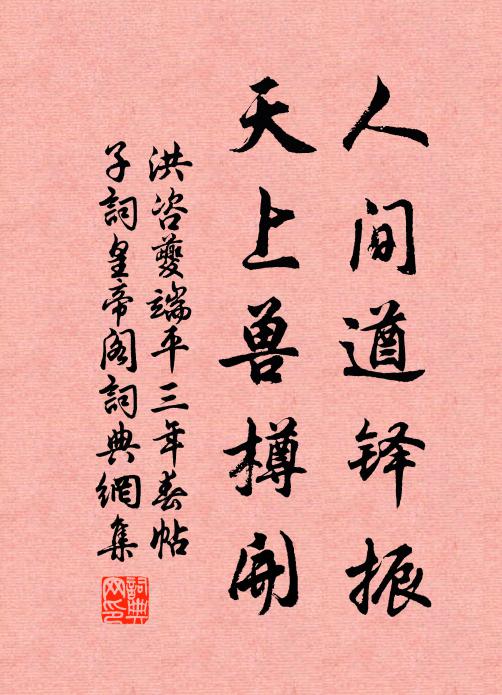 人间遒铎振
天上兽樽开
洪咨夔端平三年春帖
子詞皇帝阁詞典網集
詞典網印